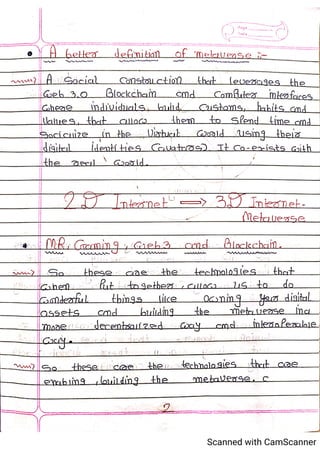 A better definition of metaverse :-
A Social Construction that leverages the
Web 3.0 Blockchain and Computer interfaces
where individuals, build Customs, habits and
Values, that allows them to Spend time and
Socinize in the Virtual World using their
digital identities (avatars). It Co-exists with
the real World.
2D Internet ⇒ 3D Internet.
Metaverse
MR, Gaming, Web3 and Blockchain.
So these are the technologies that
when Put together, allows us to do
Wonderful things like Owning your digital
assets and building the metaverse in a
more decentralized way and interoperable
Way.
So these are the technologies that are
enabling, building the metaverse. c
2
Scanned with CamScanner